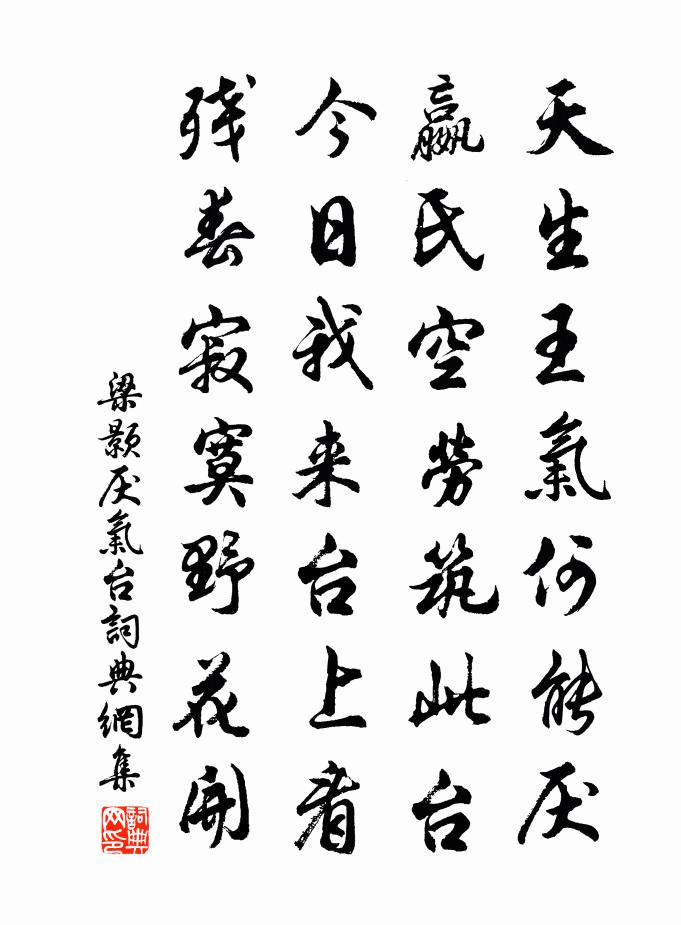 天生王氣何能厌
嬴氏空勞筑此台
今日我来台上看
残春寂寞野花開
梁颢厌氣台詞典網集
詞典网印